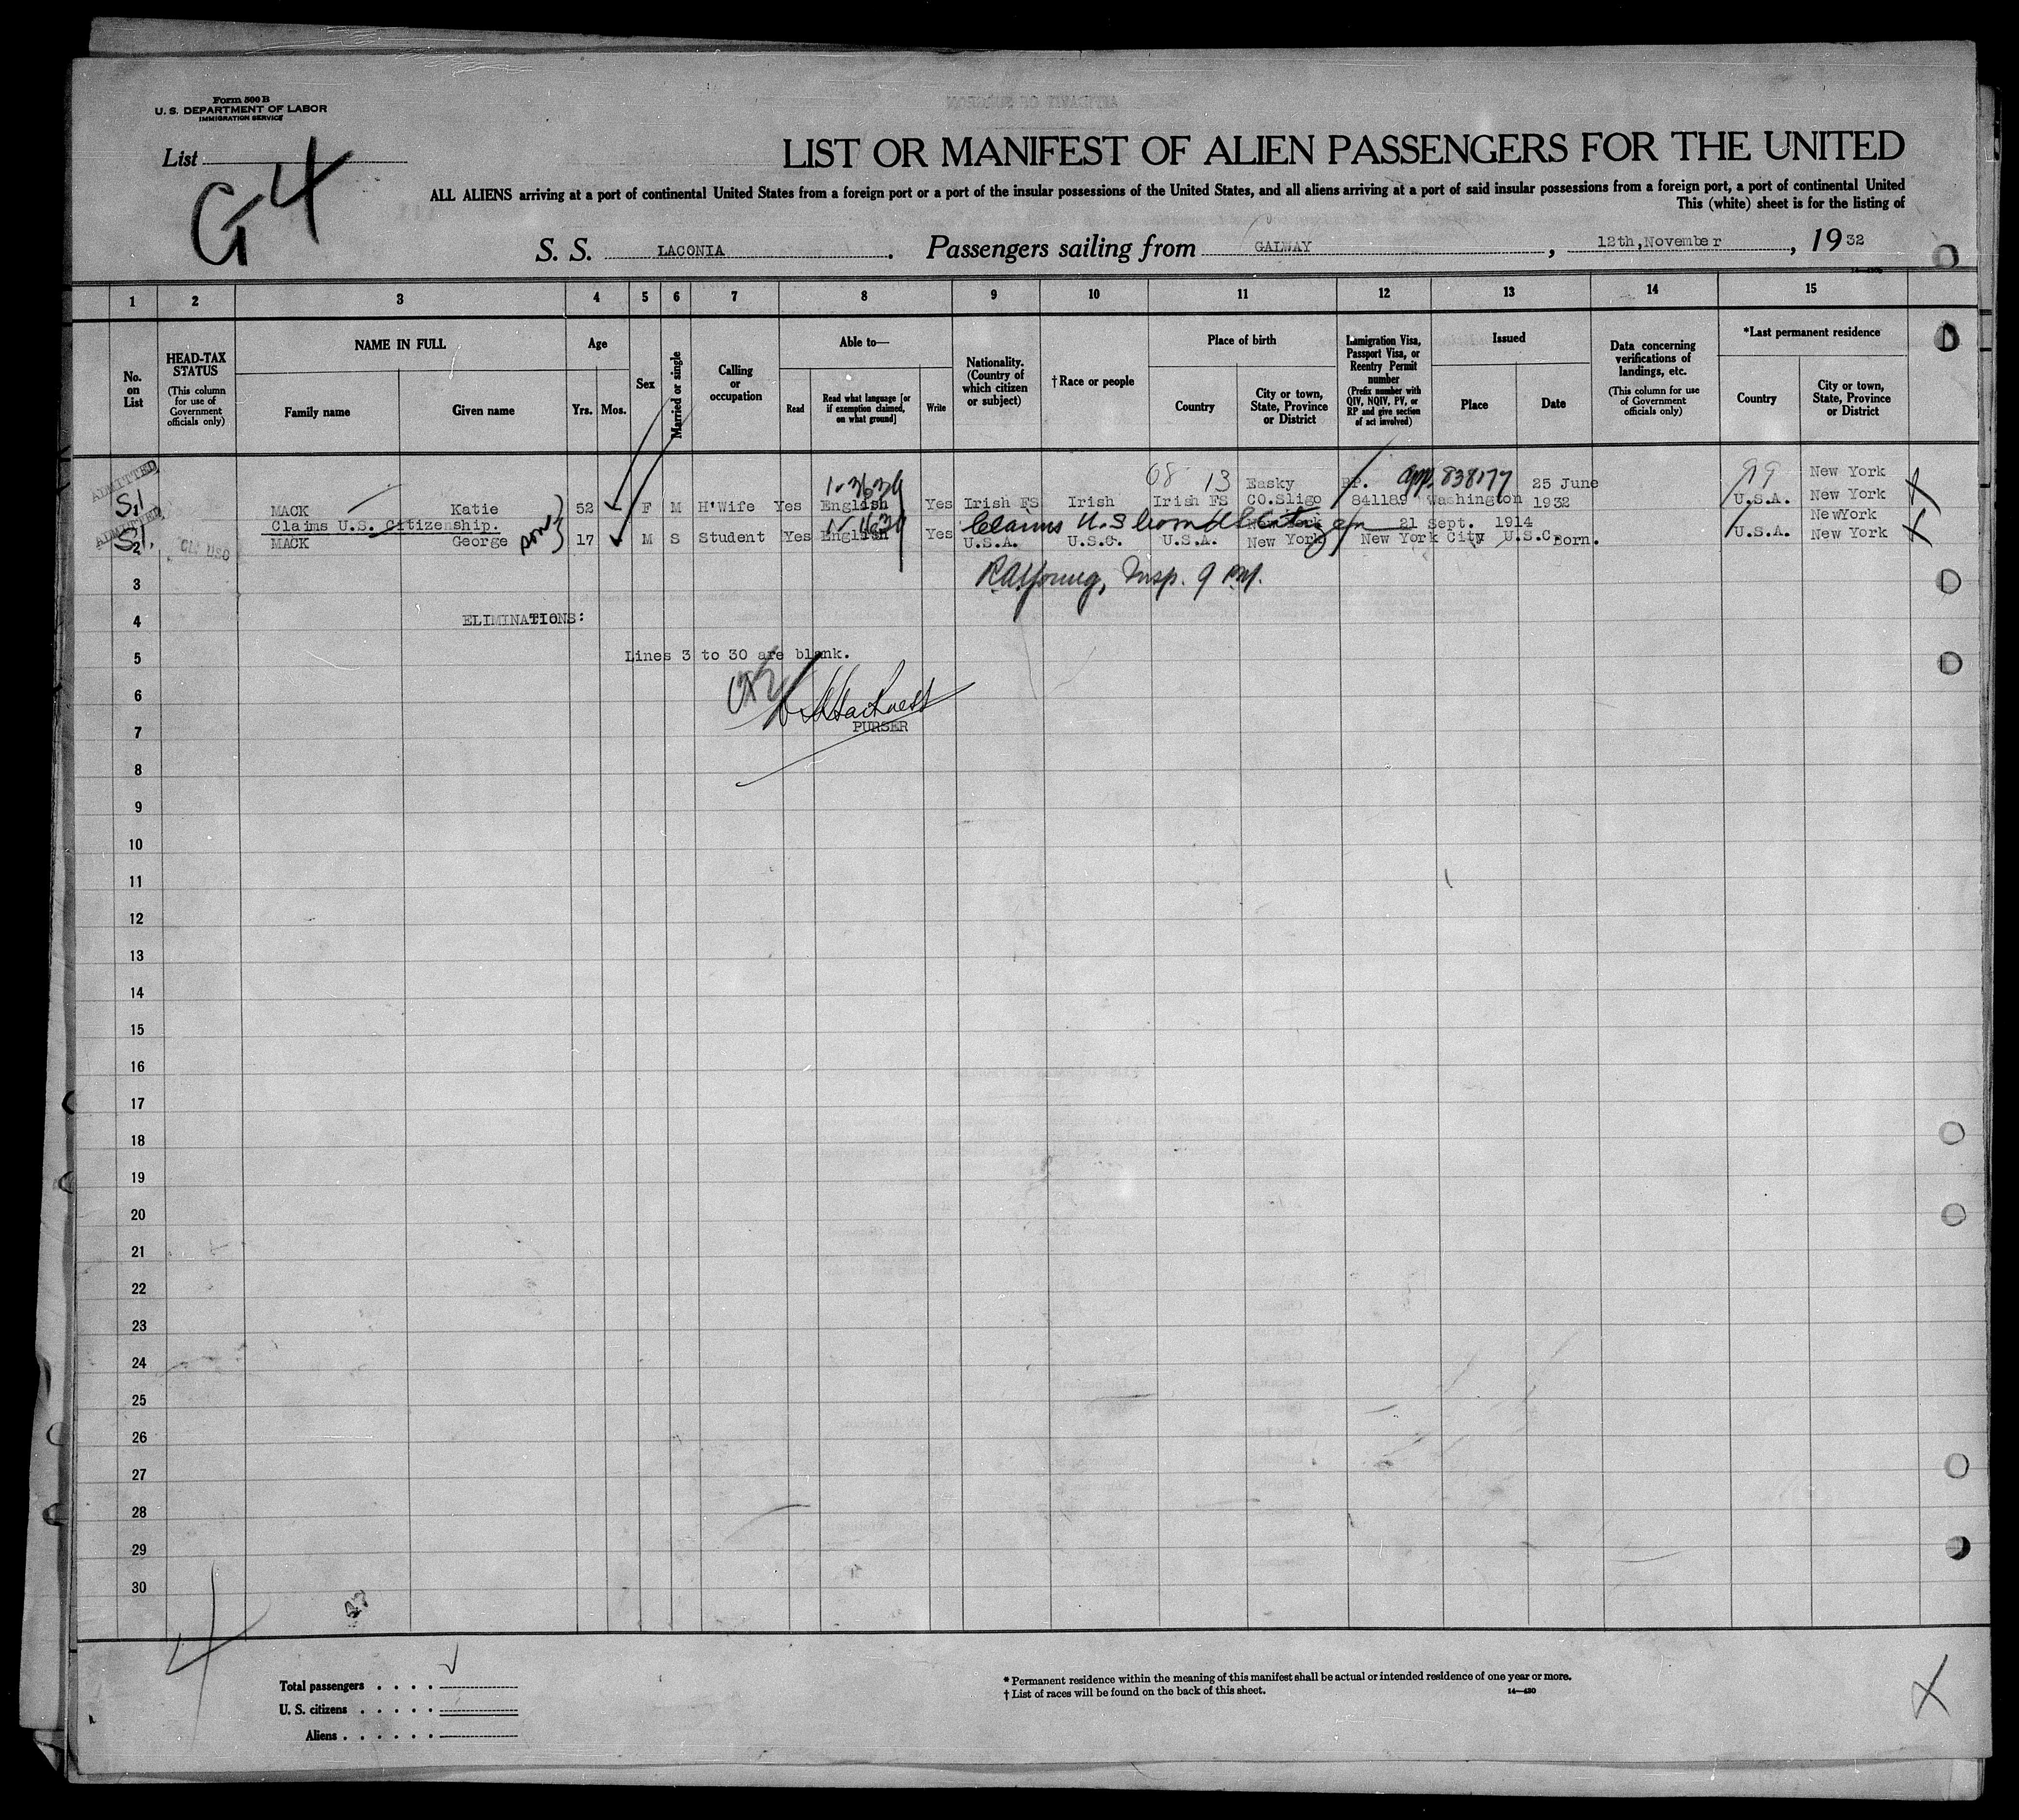 Form 500 B
U. S. DEPARTMENT OF LABOR
IMMIGRATION SERVICE
List
G4
LIST OR MANIFEST OF ALIEN PASSENGERS FOR THE UNITED
ALL ALIENS arriving at a port of continental United States from a foreign port or a port of the insular possessions of the United States, and all aliens arriving at a port of said insular possessions from a foreign port, a port of continental United
This (white) sheet is for the listing of
S. S. LACONIA. Passengers sailing from GALWAY, 12th, November, 1932
1 2 3 4 5 6 7 8 9 10 11 12 13 14 15
No. on List
HEAD-TAX STATUS (This column for use of Government officials only)
NAME IN FULL
Family name Given name
Age
Yrs. Mos.
Sex
Married or single
Calling or occupation
Able to—
Read
Read what language [or if exemption claimed, on what ground]
Write
Nationality. (Country of which citizen or subject)
†Race or people
Place of birth
Country
City or town, State, Province or District
Immigration Visa, Passport Visa, or Reentry Permit number (Prefix number with QIV, NQIV, PV, or RP and give section of act involved)
Issued
Place Date
Data concerning verifications of landings, etc. (This column for use of Government officials only)
*Last permanent residence
Country
City or town, State, Province or District
ADMITTED
68 13 Easky RP. app. 838177 25 June 99 New York
MACK Katie 52 F M H'Wife Yes English Yes Irish FS Irish Irish FS CO.Sligo 841189 Washington 1932 U.S.A. New York
ADMITTED
Claims U.S. Citizenship. Claims U.S born U.S. Citizen 21 Sept. 1914 NewYork
MACK George son 17 M S Student Yes English Yes U.S.A. U.S.C. U.S.A. New York New York City U.S.C. Born. U.S.A. New York
3 RA Young, Insp. 9 P.M.
4 ELIMINATIONS:
5 Lines 3 to 30 are blank.
6
7 PURSER
8
9
10
11
12
13
14
15
16
17
18
19
20
21
22
23
24
25
26
27
28
29
30
Total passengers . . . .
U. S. citizens . . . . .
Aliens . . . . . .
* Permanent residence within the meaning of this manifest shall be actual or intended residence of one year or more.
† List of races will be found on the back of this sheet.
14—430